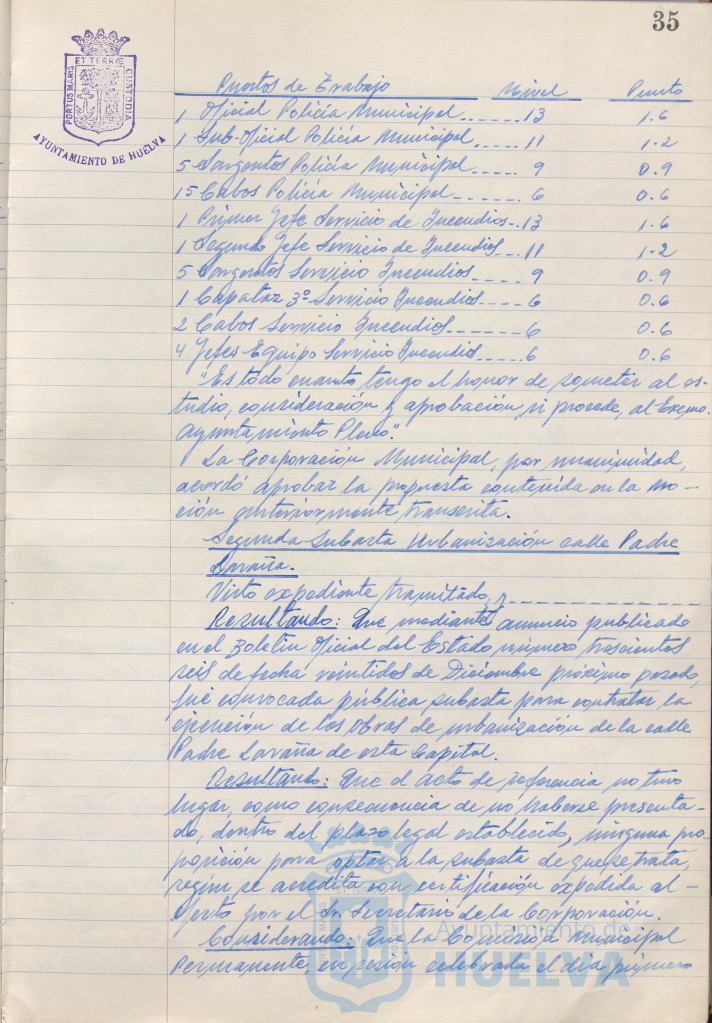 35
PORTUS MARIS ET TERRÆ CUSTODIA
AYUNTAMIENTO DE HUELVA
Puestos de Trabajo Nivel Punto
1 Oficial Policía Municipal ...... 13 1.6
1 Sub-Oficial Policía Municipal ..... 11 1.2
5 Sargentos Policía Municipal ..... 9 0.9
15 Cabos Policía Municipal ..... 6 0.6
1 Primer Jefe Servicio de Incendios .. 13 1.6
1 Segundo Jefe Servicio de Incendios ... 11 1.2
5 Sargentos Servicio Incendios .... 9 0.9
1 Capataz 3º Servicio Incendios .... 6 0.6
2 Cabos Servicio Incendios ...... 6 0.6
4 Jefes Equipo Servicio Incendios .... 6 0.6
"Es todo cuanto tengo el honor de someter al es-
tudio, consideración y aprobación si procede, al Excmo.
Ayuntamiento Pleno."
La Corporación Municipal, por unanimidad,
acordó aprobar la propuesta contenida en la mo-
ción anteriormente transcrita.
Segunda Subasta Urbanización calle Padre
Laraña.
Visto expediente tramitado, y
Resultando: Que mediante anuncio publicado
en el Boletin Oficial del Estado número trescientos
seis de fecha veintidos de Diciembre próximo pasado,
fué convocada pública subasta para contratar la
ejecución de las obras de urbanización de la calle
Padre Laraña de esta Capital.
Resultando: Que el acto de referencia no tuvo
lugar, como consecuencia de no haberse presenta-
do, dentro del plazo legal establecido, ninguna pro
posición para optar a la subasta de que se trata,
según se acredita con certificación expedida al
efecto por el Sr. Secretario de la Corporación.
Considerando: Que la Comisión Municipal
Permanente, en sesión celebrada el día primero
Ayuntamiento de
HUELVA